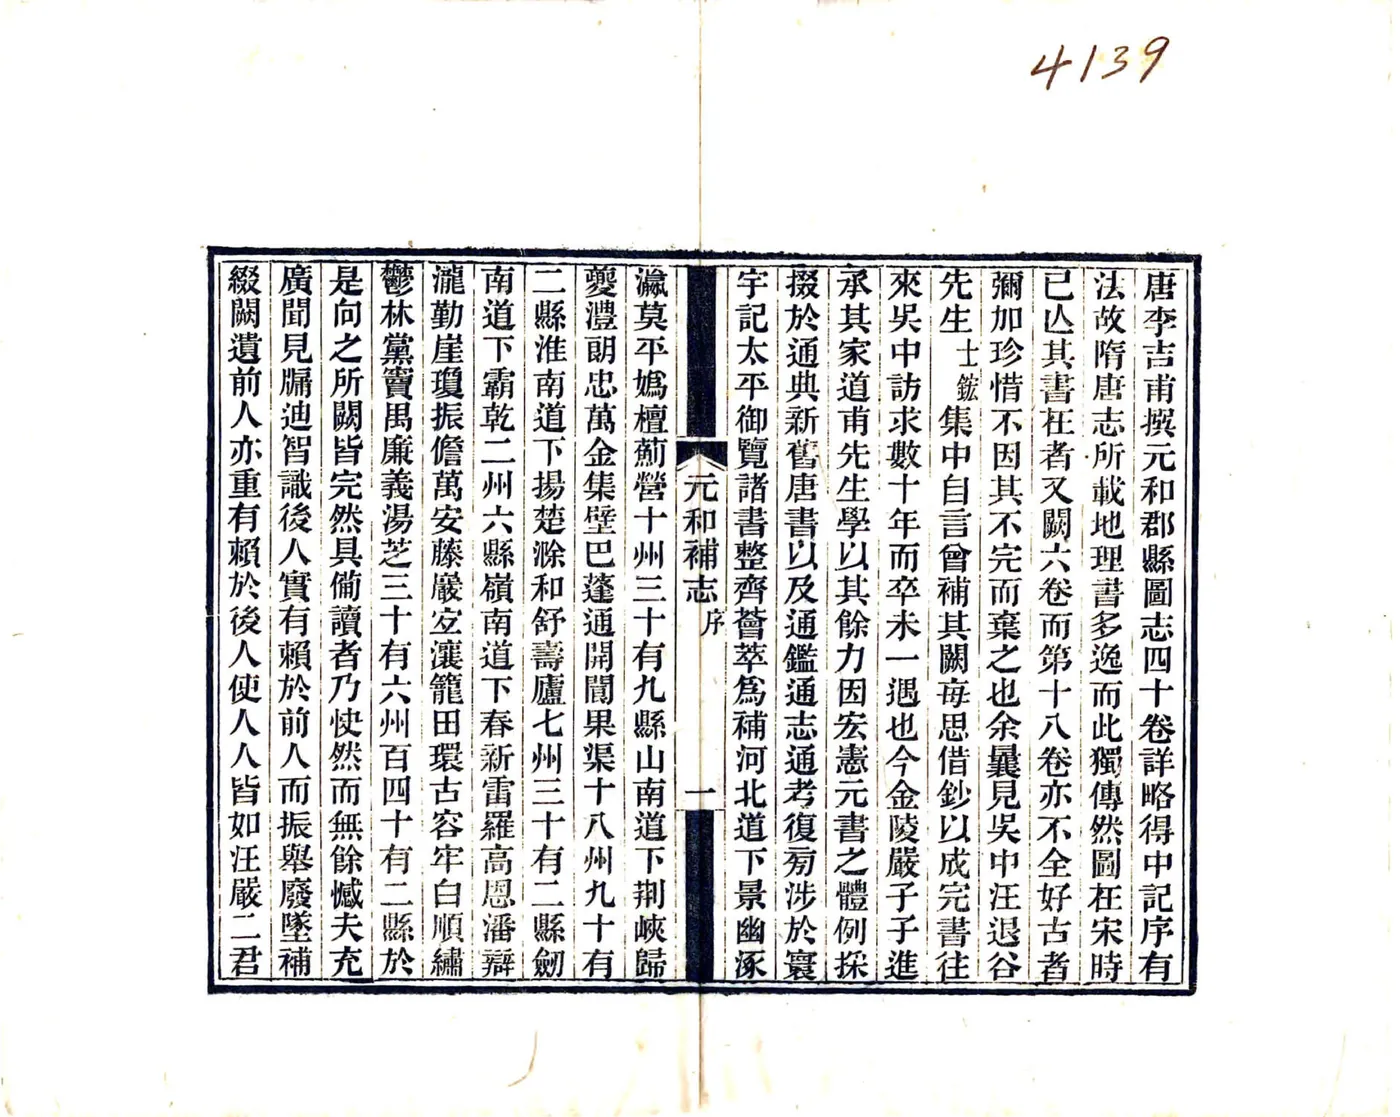 4139
唐李吉甫撰元和郡縣圖志四十卷詳略得中記序有
法故隋唐志所載地理書多逸而此獨傳然圖在宋時
已亾其書在者又闕六卷而第十八卷亦不全好古者
彌加珍惜不因其不完而棄之也余曩見吳中汪退谷
先生士鋐集中自言曾補其闕每思借鈔以成完書往
來吳中訪求數十年而卒未一遇也今金陵嚴子子進
承其家道甫先生學以其餘力因宏憲元書之體例採
掇於通典新舊唐書以及通鑑通志通考復旁涉於寰
宇記太平御覽諸書整齊薈萃爲補河北道下景幽涿
元和補志 序 一
瀛莫平嬀檀薊營十州三十有九縣山南道下荆峽歸
夔澧朗忠萬金集壁巴蓬通開閬果渠十八州九十有
二縣淮南道下揚楚滁和舒壽廬七州三十有二縣劒
南道下霸乾二州六縣嶺南道下春新雷羅高恩潘辯
瀧勤崖瓊振儋萬安藤巖宐瀼籠田環古容牢白順繡
鬱林黨竇禺廉義湯芝三十有六州百四十有二縣於
是向之所闕皆完然具備讀者乃快然而無餘憾夫充
廣聞見牖迪智識後人實有賴於前人而振舉廢墜補
綴闕遺前人亦重有賴於後人使人人皆如汪嚴二君